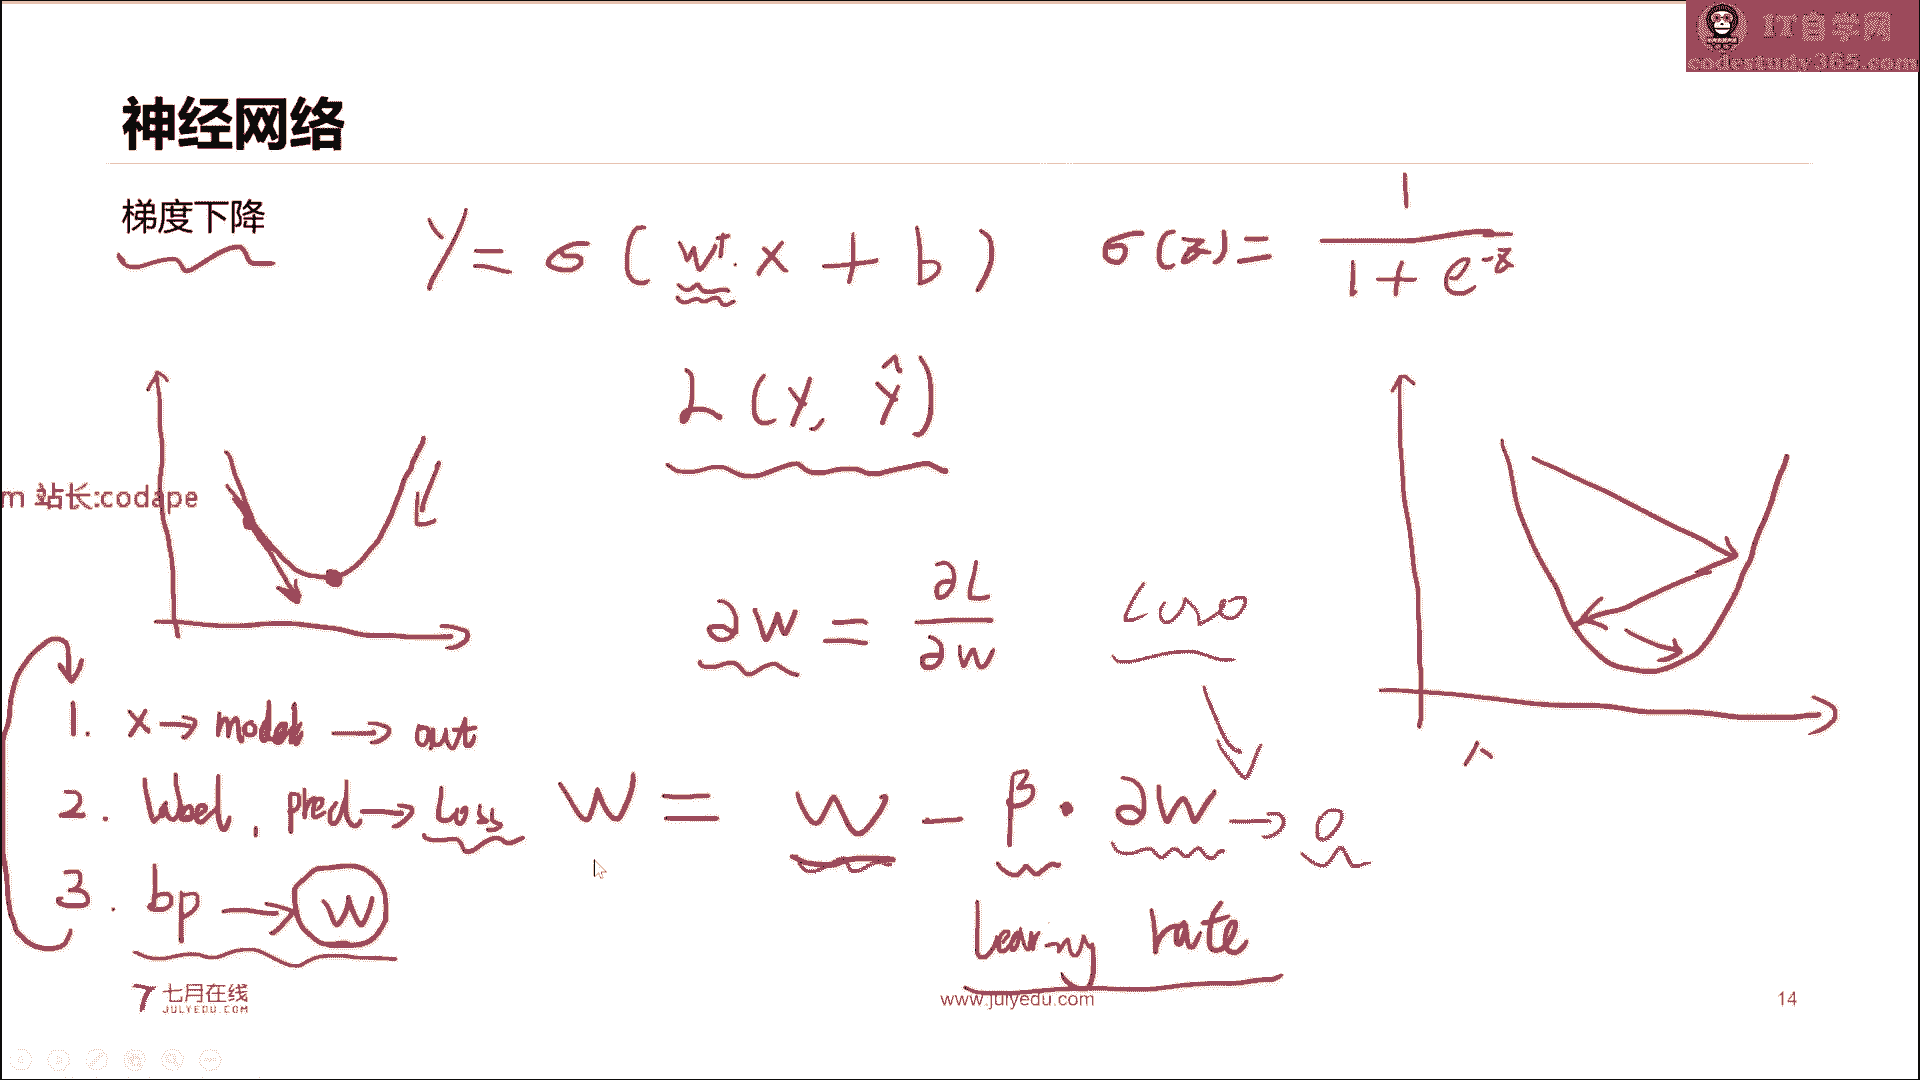 IT自学网
codestudy365.com
神经网络
梯度下降
y = σ ( wᵀ· x + b )
σ(z) = 1 / (1 + e^-z)
L (y, ŷ)
m 站长:codape
∂w = ∂L / ∂w
1. x → model → out
2. label, pred → Loss
w = w - β · ∂w → 0
3. bp → w
learning rate
七月在线
JULYEDU.COM
www.julyedu.com
14